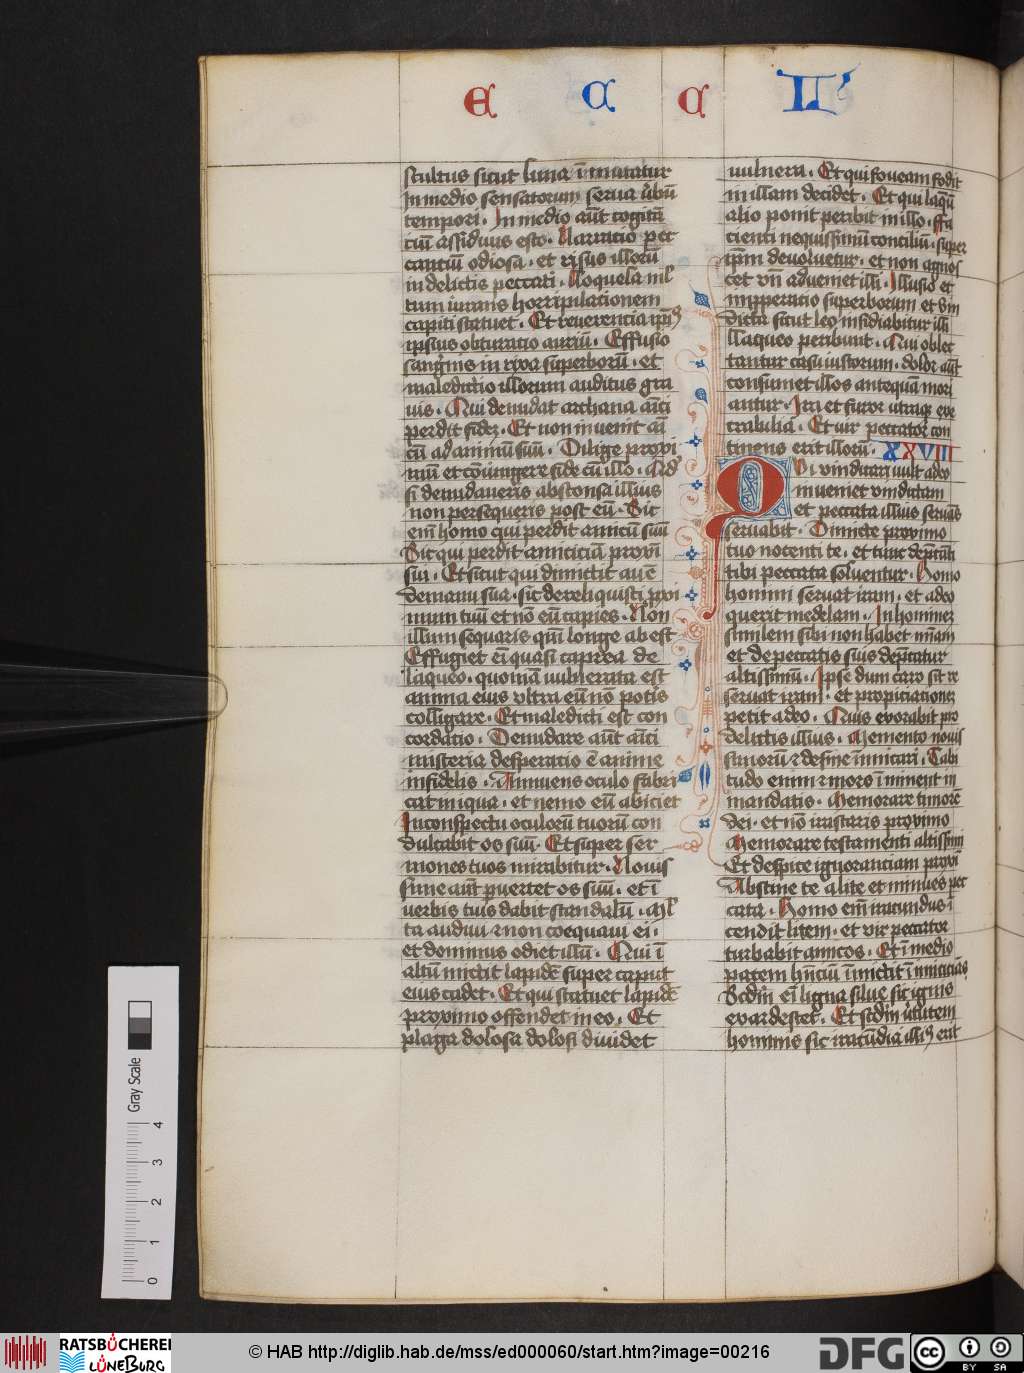 E C C Li
stultus sicut luna īmutatur
In medio sensatorum serua ūbū
tempori. In medio aūt cogitā
ciū assiduus esto. Narratio pec
cantiū odiosa. et risus illorū
in delictis peccati. Loquela ml̄
tum iurans horripilationem
capiti statuet. Et reuerencia ip̄iꝰ
ipsius obturatio auriū. Effusio
sangīnis in rixa superborū. et
maledictio illorum auditus gra
uis. Qui denudat archana aīci
perdit fidē. Et non inuenit aī
cū ad animū suū. Dilige proxi
mū et cōiungere fide cū illo. Qd̓
si denudaueris absconsa illius
non persequeris post eū. Sic
em̄ homo qui perdit amicū suū
Sic qui perdit amiciciā proxī
sui. Et sicut qui dimictit auē
de manu sua. sic dereliquisti p̄xi
mum tuū et nō eū capies. Non
illum sequaris qm̄ longe abest
Effugiet eī quasi caprea de
laqueo. quoniā uulnerata est
anima eius vltra eū nō potis
colligare. Et maledicti est con
cordatio. Denudare aūt aīci
misteria desperatio ē anime
infidelis. Annuens oculo fabri
cat iniqua. et nemo eū abiciet
In conspectu oculorū tuorū con
dulcabit os suū. Et super ser
mones tuos mirabitur. Nouis
sime aūt puertet os suū. et ī
uerbis tuis dabit scandalū. Ml̄
ta audiui et non coequaui ei.
et dominus odiet illū. Qui ī
altū mictit lapidē super caput
eius cadet. Et qui statuet lapidē
proximo offendet in eo. Et
plaga dolosa dolosi diuidet
uulnera. Et qui foueam fodit
in illam decidet. Et qui laqū
alio ponit peribit in illo. ffa
cienti nequissimū conciliū. super
ip̄m deuoluetur. et non agnos
cet vn̄ adueniet illi. Illusio et
impperatio superborum et vin
dicta sicut leo insidiabitur illi
Laqueo peribunt. Qui oblec
tantur casu iustorum. dolor aūt
consumet illos antequā mori
antur. Ira et furor utraqꝫ exe
crabilia. Et uir peccator con
tinens erit illorū. XXVIII
Qui vindicari uult a deo
inueniet vindictam
et peccata illius seruās
seruabit. Dimicte proximo
tuo nocenti te. et tunc dep̄cāti
tibi peccata soluentur. Homo
homini seruat iram. et a deo
querit medelam. In hominē
similem sibi non habet mīam
et de peccatis suis dep̄catur
altissimū. Ipse dum caro sit re
seruat iram. et propiciationē
petit a deo. Quis exorabit pro
delictis illius. Memento nouis
simorū et desine inimicari. Tabi
tudo enim et mors īminent in
mandatis. Memorare timorē
dei. et nō irascaris proximo
Memorare testamenti altissimi
Et despice ignoranciam proxī
Abstine te a lite et minues pec
cata. Homo em̄ iracundus ī
cendit litem. et vir peccator
turbabit amicos. Et ī medio
pacem hn̄ciū īmictit īimicicias
Scdm̄ eī ligna silue sic ignis
exardescet. Et scdm̄ ūtutem
hominis sic iracūdia illiꝰ erit
Gray Scale
4
3
2
1
0
RATSBÜCHEREI
LÜNEBURG
© HAB http://diglib.hab.de/mss/ed000060/start.htm?image=00216
DFG
cc BY SA